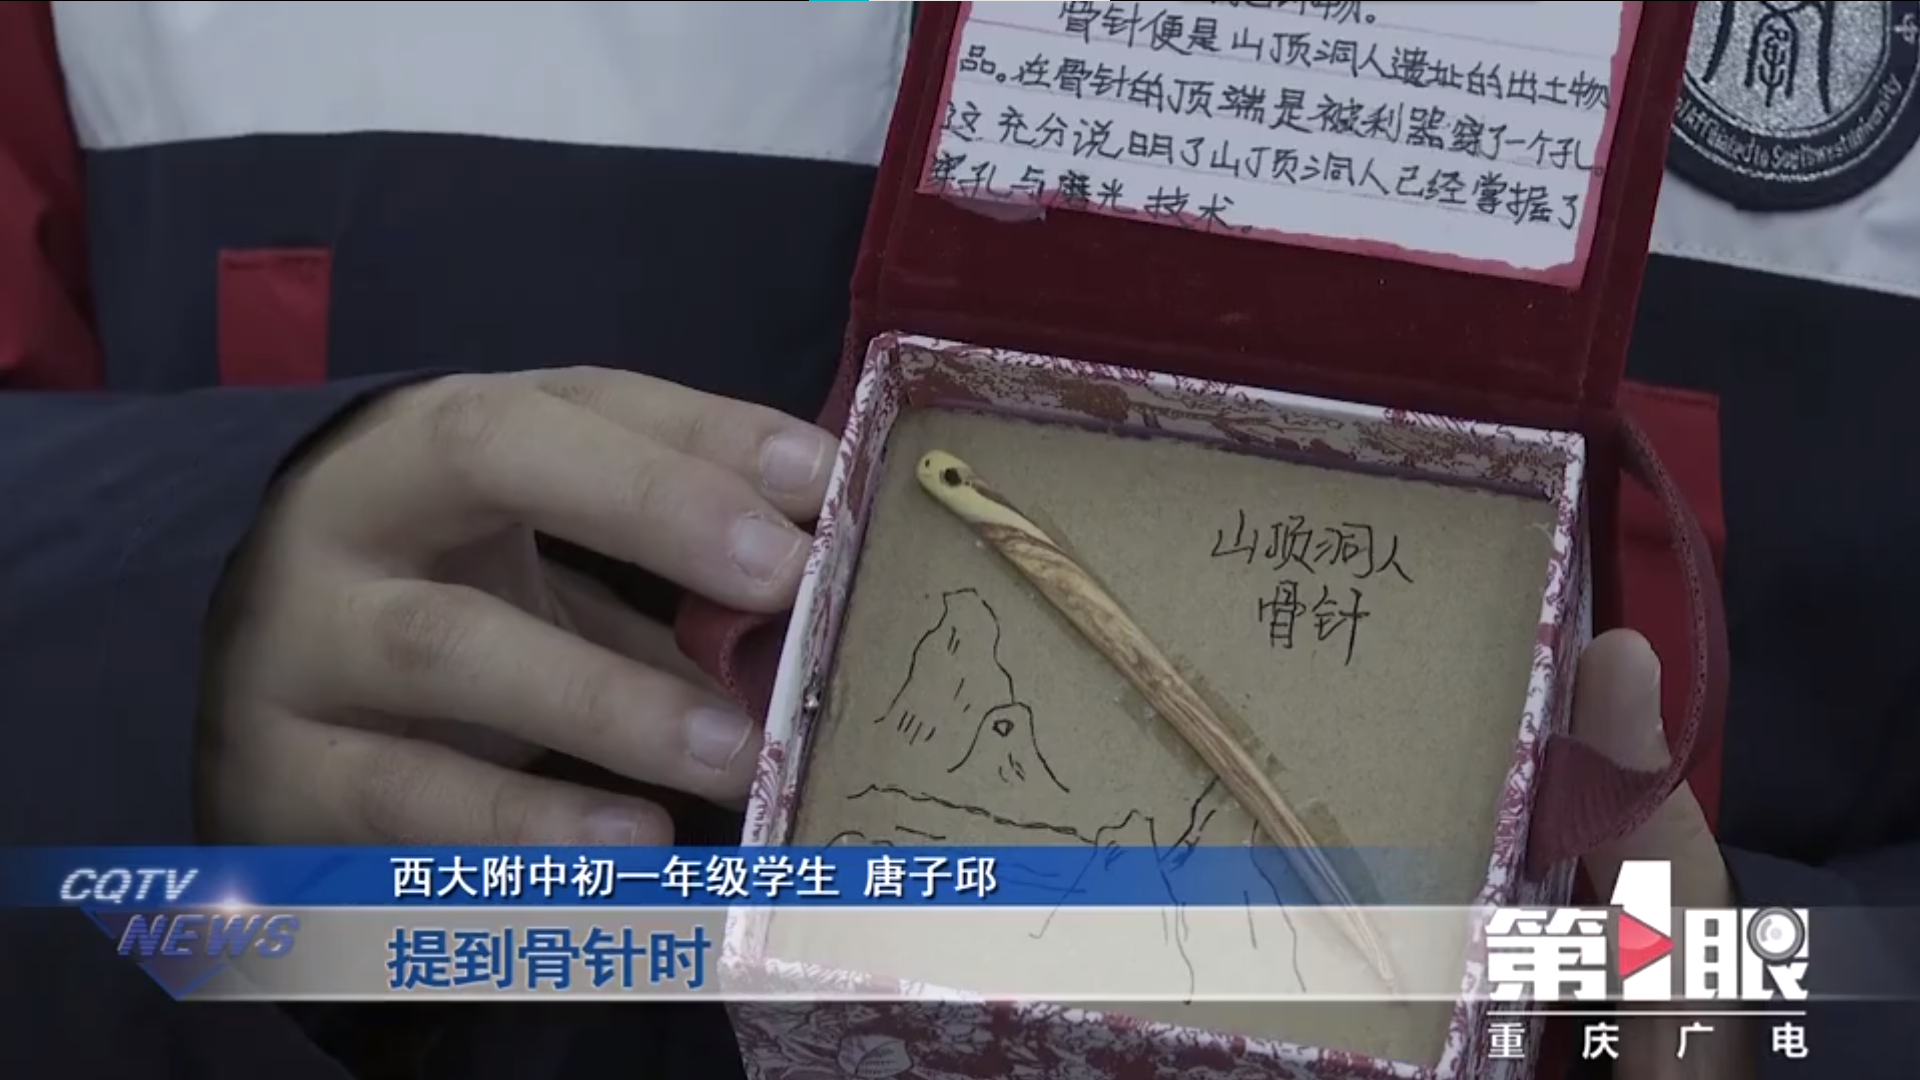 骨针便是山顶洞人遗址的出土物
品。在骨针的顶端是被利器穿了一个孔。
这充分说明了山顶洞人已经掌握了
穿孔与磨光技术。
山顶洞人
骨针
CQTV
NEWS
西大附中初一年级学生 唐子邱
提到骨针时
第1眼
重庆广电